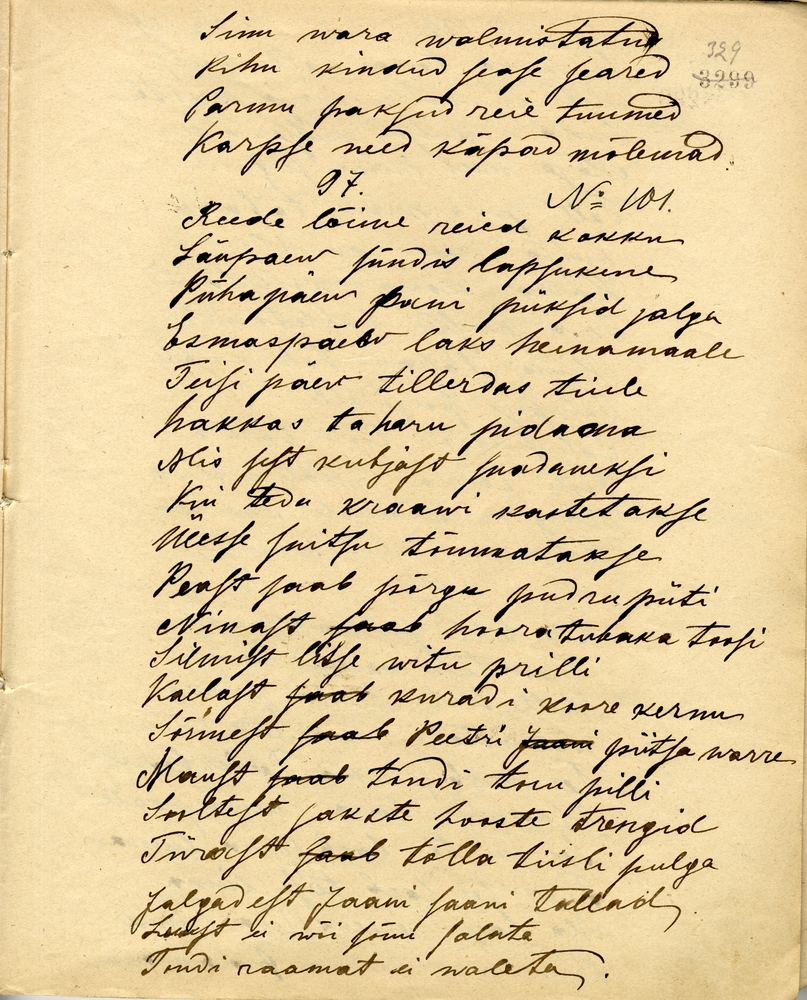 Sinu wara walmistatud
Kihu kindud sease seared
329
3299
Parmu paksud reie tuumed
Karpse need käpad mõlemad.
97.
№ 101.
Reede lõime reied kokku
Laupäew sündis lapsukene
Pühapäew pani püksid jalga
Esmaspäew läks heinamaale
Teisi päew tillerdas tiule
hakkas taharu pidama
Mis sest kubjast saadaneksi
Kui teda kraawi kastetakse
Üesse suitsu tõmmatakse
Peast saab põrgu pudru püti
Ninast saab hoora tubaka toosi
Silmist litse witu prilli
Kaelast saab kuradi koore kernu
Sõrmest saab Peetri Jaani piitsa warre
Maust saab tondi toru pilli
Sooltest jakste hooste trengid
Türast saab tõlla tiisli pulga
Jalgadest Jaani saani tallad,
Luust ei wõi sõnu salata
Tondi raamat ei waleta.